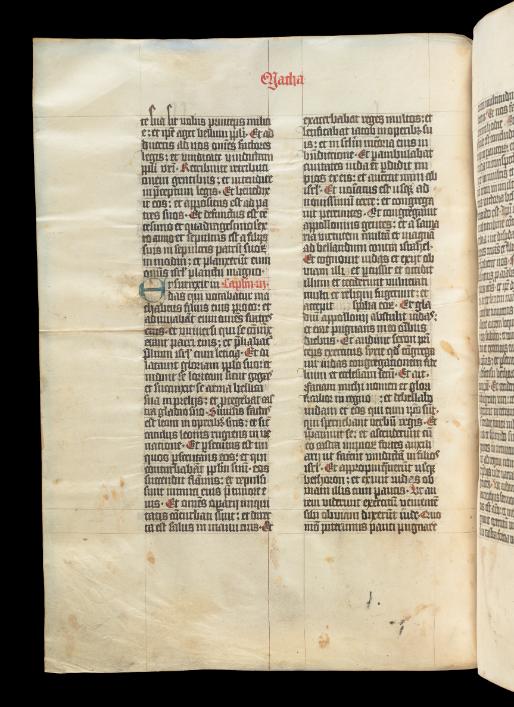 Macha
te sua sit uobis princeps milici
e: et ip̄e aget bellum ppl̄i. Et ad
ducetis ad uos om̄es factores
legis: et uindicate uindictam
ppl̄i ur̄i. Retribuite retribuci
onem gentibus: et intendite
in p̄ceptum legis. Et benedix
it eos: et appositus est ad pa
tres suos. Et defunctus est cē
tesimo et quadragesimo sex
to anno et sepultus est a filijs
suis in sepulcris patrū suorū
in modin: et planxerūt eum
om̄is isr̄l planctu magno.
Et surrexit iu Capl̄m .iij.
das qui uocabatur ma
chabeus filius eius pro eo: et
adiuuabāt eum om̄es fratres
eius. et uniuersi qui se coniūx
erant patri eius: et p̄liabāt
p̄lium isr̄l cum leticia. Et di
latauit gloriam pplo suo: et
induit se loricam sicut gygas
et succinxit se arma bellica
sua in prelijs: et protegebat cast
ra gladio suo. Similis factus
est leoni in operibus suis: et sic
catulus leonis rugiens in ve
natione. Et persecutus est ini
quos perscrutans eos: et qui
conturbabāt pplm suum. eos
succendit flāmis: et repulsi
sunt inimici eius p̄ timore e
ius. Et om̄es operarij iniqui
tatis cōturbati sunt: et direc
ta est salus in manu eius. Et
exacerbabat reges multos: et
letificabat iacob in operibus su
is: et in sc̄lm memoria eius in
benedictione. Et perambulabit
ciuitates iuda et p̄didit im
pios ex eis: et auertit iram ab
isr̄l. Et noīatus est usq; ad
nouissimū terre: et congrega
uit pereuntes. Et congregauit
appollonius gentes: et a sama
ria virtutem multā et magnā
ad bellandum contra israhel.
Et cognouit iudas et exijt ob
uiam illi: et percussit et occidit
illum et ceciderunt uulnerati
multi et reliqui fugerunt: et
accepit spolia eorum. Et gla
diū appollonij abstulit iudas:
et erat pugnans in eo om̄ibus
diebus. Et audiuit seron pri
ceps exercitus syrie qd̄ cōgrega
uit iudas congregationem fide
lium et ecclesiam secū. Et ait.
Faciam michi nomen et glori
ficabor in regno: et debellabo
iudam et eos qui cum ip̄o sūt.
qui spernebant verbū regis. Et
p̄parauit se: et ascenderunt cū
eo castra impiorū fortes auxili
arij ut facerēt vindictā in filios
isr̄l. Et appropinquerūt usq;
bethoron: et exiuit iudas ob
uiam illis cum paucis. Ut au
tem viderunt exercitū veniente
sibi obuiam dixerunt iude. Quo
mō poterimus pauci pugnare